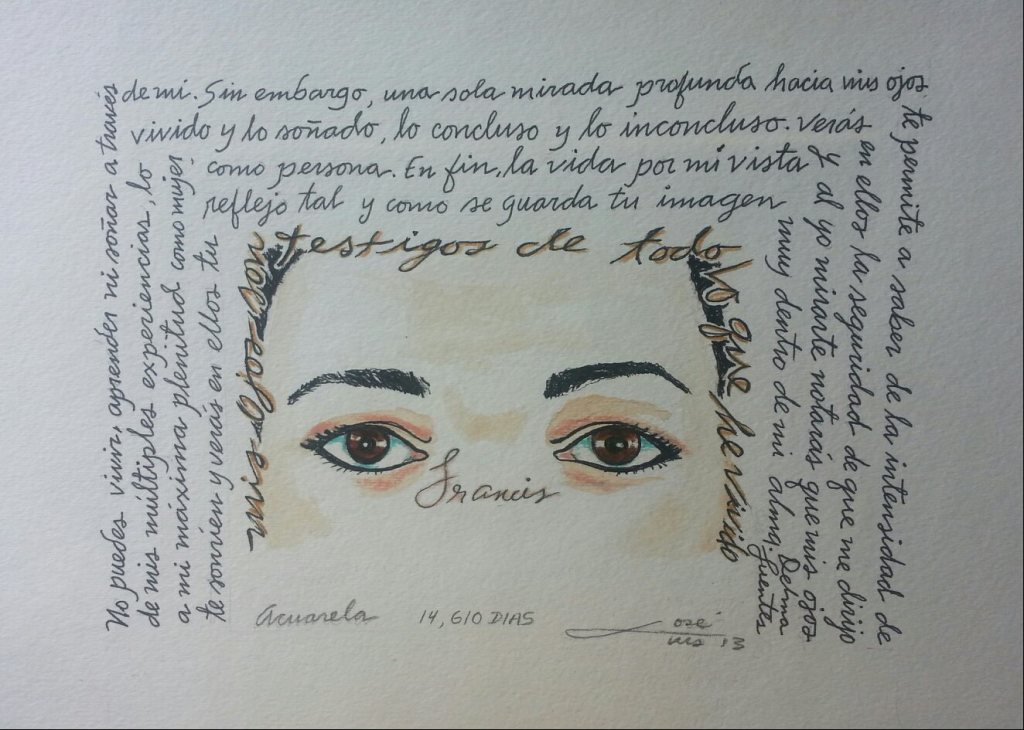 No puedes vivir, aprender ni soñar a través
de mi. Sin embargo, una sola mirada profunda hacia mis ojos
te permite a saber de la intensidad de
de mis múltiples experiencias, lo
vivido y lo soñado, lo concluso y lo inconcluso. Verás
en ellos la seguridad de que me dirijo
a mi máxima plenitud como mujer
como persona. En fin, la vida por mi vista
y al yo mirarte notarás que mis ojos
te sonríen y verás en ellos tu
reflejo tal y como se guarda tu imagen
muy dentro de mi alma.
Delma
Fuentes
mis ojos son
testigos de todo
lo que he vivido
Francis
Acuarela
14,610 DIAS
José
Luis '13